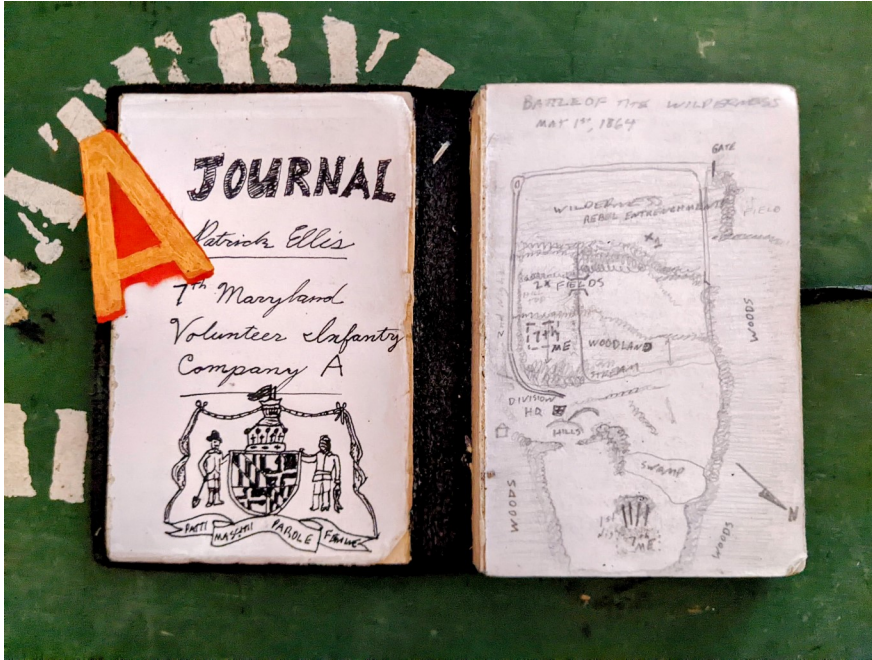 A
JOURNAL
Patrick Ellis
7th Maryland
Volunteer Infantry
Company A
FATTI
MASCHII
PAROLE
FEMINE
BATTLE OF THE WILDERNESS
MAY 1st, 1864
GATE
WILDERNESS
REBEL ENTRENCHMENTS
FIELD
x1
2x FIELDS
WOODS
7th
ME
WOODLAND
STREAM
DIVISION
HQ
HILLS
SWAMP
WOODS
N
1st
7th
ME
WOODS